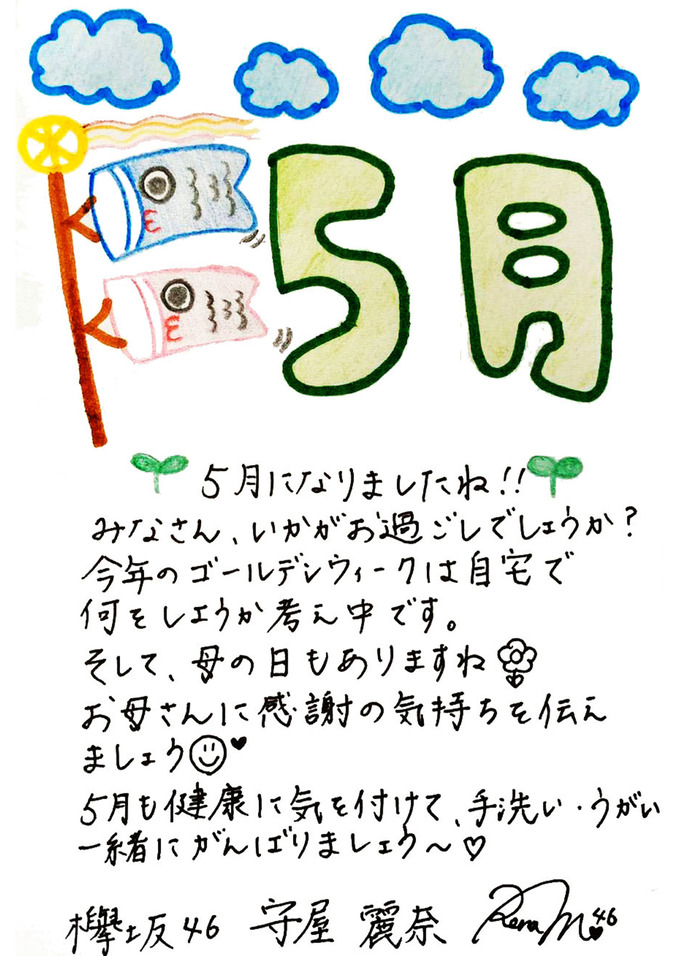 5月
5月になりましたね!!
みなさん、いかがお過ごしでしょうか?
今年のゴールデンウィークは自宅で
何をしようか考え中です。
そして、母の日もありますね
お母さんに感謝の気持ちを伝え
ましょう
5月も健康に気を付けて、手洗い・うがい
一緒にがんばりましょう~♡
欅坂46 守屋 麗奈 Rena M 46